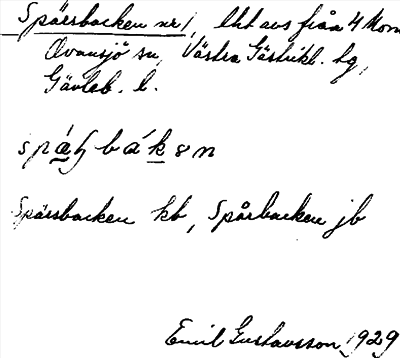 Spårsbacken nr 1, lht avs från 4 Mom
Ovansjö sn, Västra Gästrikl. hg,
Gävleb. l.
Spårsbacken kb, Spårbacken jb
Emil Gustavsson 1929